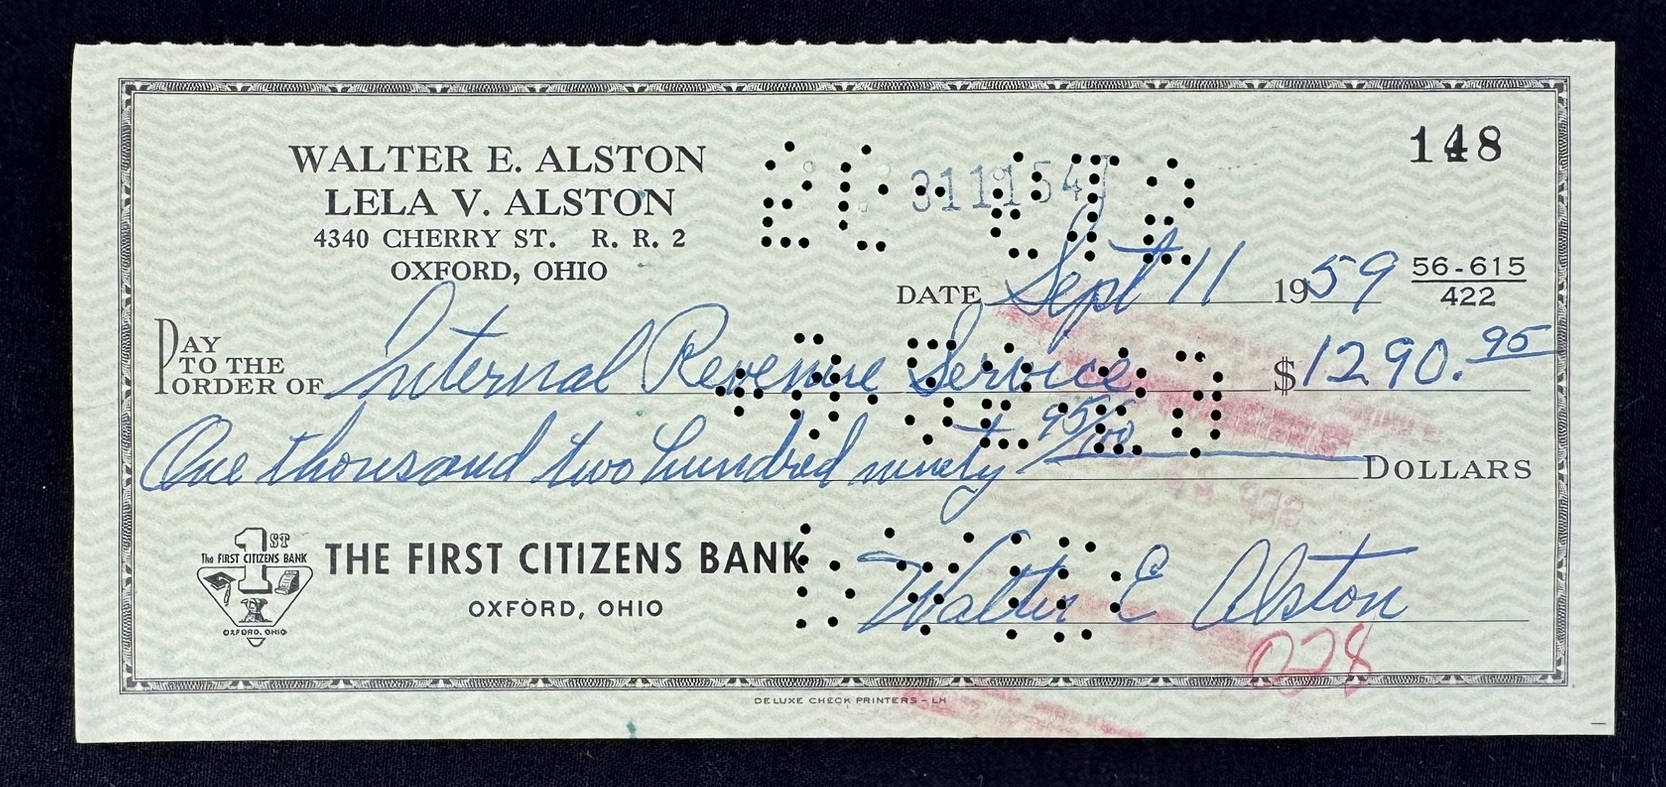 WALTER E. ALSTON
LELA V. ALSTON
4340 CHERRY ST. R. R. 2
OXFORD, OHIO
148
DATE Sept 11 1959
56-615
422
PAY TO THE ORDER OF Internal Revenue Service $1290.95
One thousand two hundred ninety 95/100 DOLLARS
1ST
The FIRST CITIZENS BANK
OXFORD, OHIO
THE FIRST CITIZENS BANK
OXFORD, OHIO
Walter E Alston
028
DELUXE CHECK PRINTERS - LH